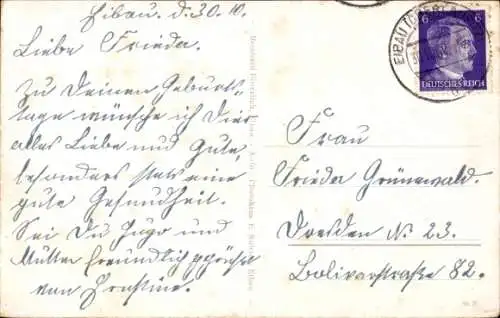 Eibau. d. 30.10.
Liebe Frieda.
Zu Deinen Geburts-
tage wünsche ich Dier
alles Liebe und Gute,
besonders stets eine
gute Gesundheit.
Sei Du Hugo und
Mutter freundlich gegrüßt
von Ernstine.
6
6
DEUTSCHES REICH
EIBAU
Frau
Frieda Grünewald.
Dresden N. 23.
Bolivarstraße 82.